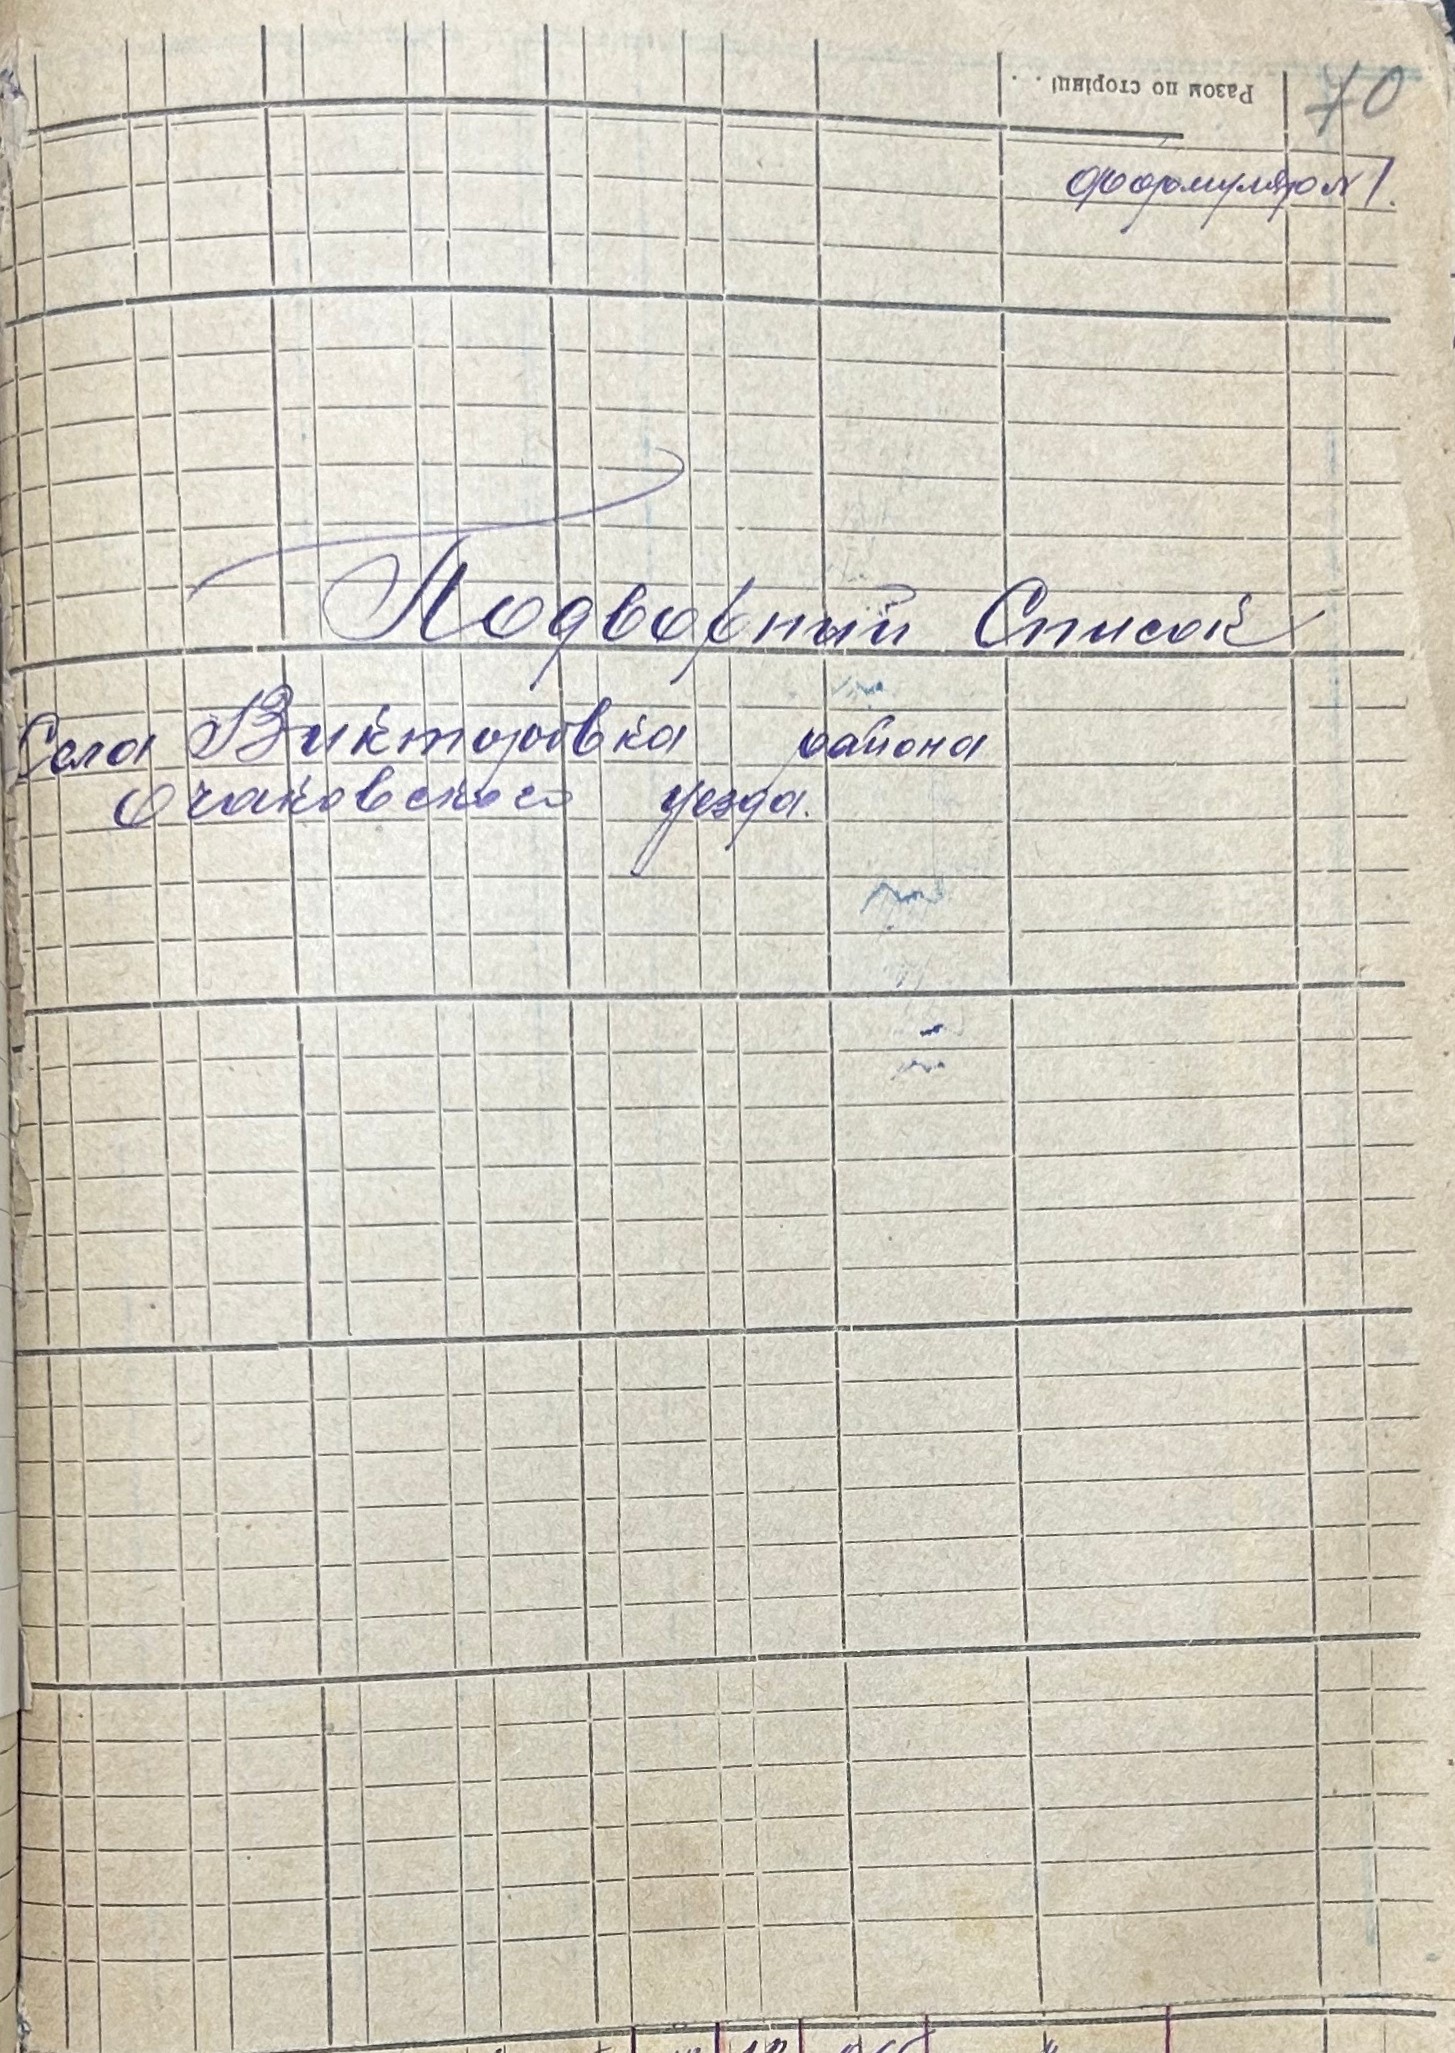 70
Разом по сторінці . . .
формуляр №1.
Подворний Список
Села Викторовка района
Очаковского уезда.